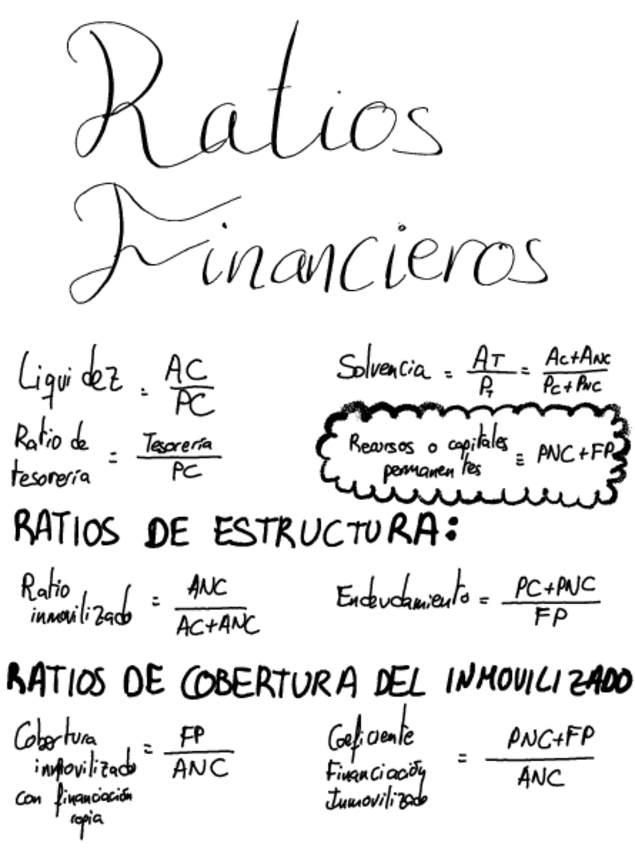 Ratios
Financieros
Liquidez = AC / PC
Solvencia = AT / PT = AC+ANC / PC+PNC
Ratio de
tesorería = Tesorería / PC
Recursos o capitales
permanentes = PNC+FP
RATIOS DE ESTRUCTURA:
Ratio
inmovilizado = ANC / AC+ANC
Endeudamiento = PC+PNC / FP
RATIOS DE COBERTURA DEL INMOVILIZADO
Cobertura
inmovilizado
con financiación
ropia
= FP / ANC
Coeficiente
Financiación
Inmovilizado
= PNC+FP / ANC